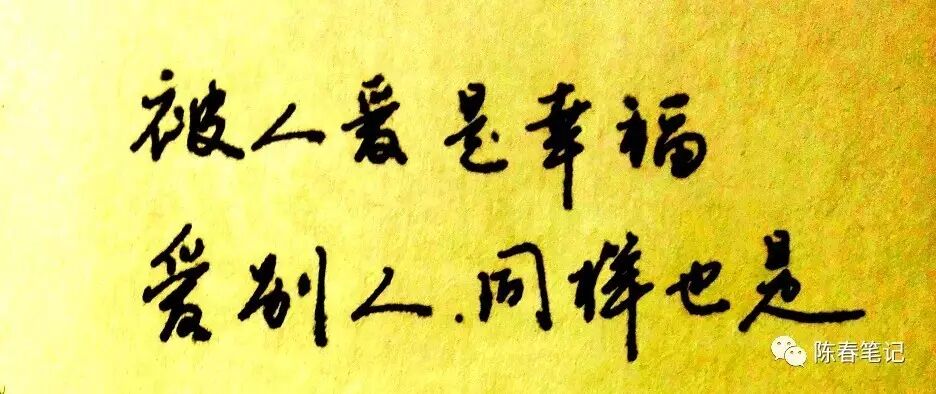 被人爱是幸福
爱别人.同样也是
陈春笔记